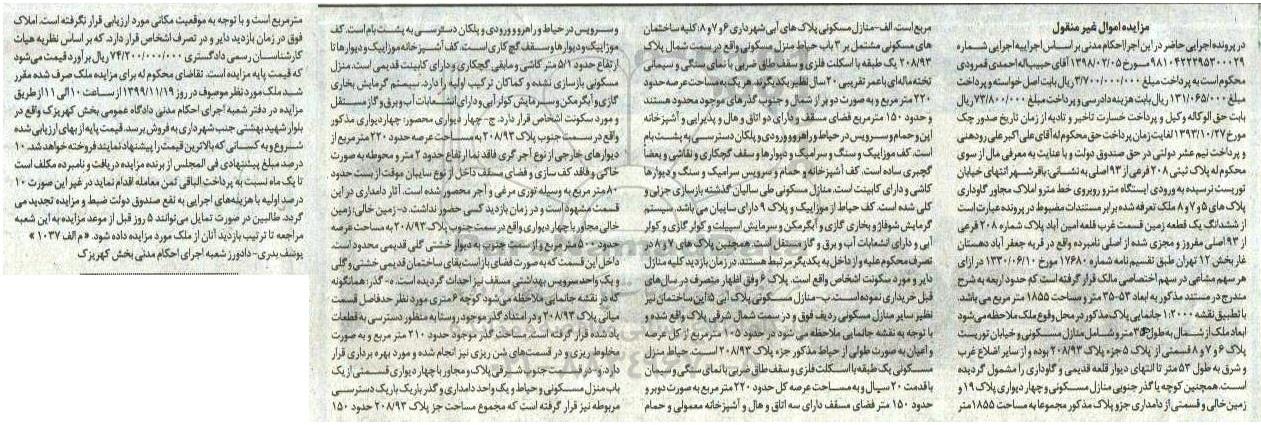 مزایده اموال غیر منقول
در پرونده اجرایی حاضر در این اجرا احکام مدنی بر اساس اجراییه اجرایی شماره
۹۸۱۰۴۲۲۲۹۵۳۰۰۰۲۹ مورخ ۱۳۹۸/۰۲/۰۵ آقای حبیب اله احمدی قمرودی
محکوم است به پرداخت مبلغ ۳/۷۰۰/۰۰۰/۰۰۰ ریال بابت اصل خواسته و پرداخت
مبلغ ۱۳۱/۰۶۵/۰۰۰ ریال بابت هزینه دادرسی و پرداخت مبلغ ۷۳/۸۰۰/۰۰۰ ریال
بابت حق الوکاله وکیل و پرداخت خسارت تاخیر و تادیه از زمان تاریخ صدور چک
مورخ ۱۳۹۳/۱۰/۲۷ لغایت زمان پرداخت حق محکوم له آقای علی اکبر علی رودهنی
و پرداخت نیم عشر دولتی در حق صندوق دولت و با عنایت به معرفی مال از سوی
محکوم له پلاک ثبتی ۲۰۸ فرعی از ۹۳ اصلی به نشانی: باقرشهر انتهای خیابان
توریست نرسیده به ورودی ایستگاه مترو روبروی خط مترو املاک مجاور گاوداری
پلاک های ۵ و ۷ و ۸ ملک تعرفه شده برابر مستندات مضبوط در پرونده عبارت است
از ششدانگ یک قطعه زمین قسمت غرب قلعه امین آباد پلاک شماره ۲۰۸ فرعی
از ۹۳ اصلی مفروز و مجزی شده از اصلی نامبرده واقع در قریه جعفر آباد دهستان
غار بخش ۱۲ تهران طبق تقسیم نامه شماره ۱۷۶۸۰ مورخ ۱۳۳۰/۰۶/۱۰ در ازای
هر سهم مشاعی در سهم اختصاصی مالک قرار گرفته است که حدود اربعه به شرح
مندرج در مستند مذکور به ابعاد ۵۳-۳۵ متر و مساحت ۱۸۵۵ متر مربع می باشد.
با تطبیق نقشه ۱:۲۰۰۰ جانمایی پلاک مذکور در محل وقوع ملک ملاحظه می شود
ابعاد ملک از شمال به طول ۳۵ متر و شامل منازل مسکونی و خیابان توریست
پلاک ۶ و ۷ و ۸ قسمتی از پلاک ۵ جزء پلاک ۲۰۸/۹۳ بوده و از سایر اضلاع غرب
و شرق به طول ۵۳ متر تا انتهای دیوار قلعه قدیمی و گاوداری را مشمول گردیده
است. همچنین کوچه یا گذر جنوبی منازل مسکونی و چهار دیواری پلاک ۱۹ و
زمین خالی و قسمتی از دامداری جزو پلاک مذکور مجموعا به مساحت ۱۸۵۵ متر
مربع است. الف-منازل مسکونی پلاک های آبی شهرداری ۶ و ۷ و ۸: کلیه ساختمان
های مسکونی مشتمل بر ۳ باب حیاط منزل مسکونی واقع در سمت شمال پلاک
۲۰۸/۹۳ یک طبقه با اسکلت فلزی و سقف طاق ضربی با نمای سنگی و سیمانی
تخته ماله ای با عمر تقریبی ۲۰ سال نظیر یکدیگرند. هر یک به مساحت عرصه حدود
۲۲۰ متر مربع و به صورت دو بر از شمال و جنوب گذرهای موجود محدود هستند
و حدود ۱۵۰ مترمربع فضای مسقف و دارای دو اتاق و هال و پذیرایی و آشپزخانه
این و حمام و سرویس در حیاط و راهرو و ورودی و پلکان دسترسی به پشت بام
است. کف موزاییک و سنگ و سرامیک و دیوارها و سقف گچکاری و نقاشی و بعضا
گچبری ساده است. کف آشپزخانه و حمام و سرویس سرامیک و سنگ و دیوارها
کاشی و دارای کابینت است. منازل مسکونی طی سالیان گذشته بازسازی جزئی و
کلی شده است. کف حیاط از موزاییک و پلاک ۹ دارای سایبان می باشد. سیستم
گرمایش شوفاژ و بخاری گازی و آبگرمکن و سرمایش اسپیلت و کولر گازی و کولر
آبی و دارای انشعابات آب و برق و گاز مستقل است. همچنین پلاک های ۷ و ۸ در
تصرف محکوم علیه و از داخل به یکدیگر مرتبط هستند. در زمان بازدید کلیه منازل
دایر و مورد سکونت اشخاص واقع است. پلاک ۶ وفق اظهار متصرف در سال های
قبل خریداری نموده است. ب-منازل مسکونی پلاک آبی ۵: این ساختمان نیز
نظیر سایر منازل مسکونی ردیف فوق و در سمت شمال شرقی پلاک واقع شده و
با توجه به نقشه جانمایی ملاحظه می شود در حدود ۱۰۵ مترمربع از کل عرصه
و اعیان به صورت طولی از حیاط مذکور جزء پلاک ۲۰۸/۹۳ است. حیاط منزل
مسکونی یک طبقه با اسکلت فلزی و سقف طاق ضربی با نمای سنگی و سیمان
با قدمت ۲۰ سال و به مساحت عرصه کل حدود ۲۲۰ متر مربع به صورت دوبر و
حدود ۱۵۰ متر فضای مسقف دارای سه اتاق و هال و آشپزخانه معمولی و حمام
و سرویس در حیاط و راهرو و ورودی و پلکان دسترسی به پشت بام است. کف
موزاییک و دیوارها و سقف گچ کاری است. کف آشپزخانه موزاییک و دیوارها تا
ارتفاع حدود ۱/۵ متر کاشی و مابقی گچکاری و دارای کابینت قدیمی است. منزل
مسکونی بازسازی نشده و کماکان ترکیب اولیه را دارد. سیستم گرمایش بخاری
گازی و آبگرمکن و سرمایش کولر آبی و دارای انشعابات آب و برق و گاز مستقل
و مورد سکونت اشخاص قرار دارد. ج- چهار دیواری محصور: چهار دیواری مذکور
واقع در سمت جنوب پلاک ۲۰۸/۹۳ به مساحت عرصه حدود ۲۲۰ متر مربع از
دیوارهای خارجی از نوع آجر گری فاقد نما ارتفاع حدود ۲ متر و محوطه به صورت
خاکی و فاقد کف سازی و فضای مسقف داخل از نوع سایبان موقت از بست حدود
۸۰ متر مربع به وسیله توری مرغی و آجر محصور شده است. آثار دامداری در این
قسمت مشهود است و در زمان بازدید کسی حضور نداشت. د- زمین خالی: زمین
خالی مجاور با چهار دیواری واقع در سمت جنوب پلاک ۲۰۸/۹۳ به مساحت عرصه
حدود ۵۰۰ متر مربع و از سمت جنوب به دیوار خشتی گلی قدیمی محدود است.
داخل این قسمت که به صورت فضای باز است بقای ساختمان قدیمی خشتی و گلی
و یک واحد سرویس بهداشتی مسقف نیز احداث گردیده است. ه- گذر: همانگونه
که در نقشه جانمایی ملاحظه می شود کوچه ۶ متری مورد نظر حد فاصل قسمت
میانی پلاک ۲۰۸/۹۳ و در امتداد گذر موجود روستا به منظور دسترسی به قطعات
یاد شده قرار گرفته است. مساحت گذر موجود حدود ۲۱۰ متر مربع و به صورت
مخلوط ریزی و در قسمت های شن ریزی نیز انجام شده و مورد بهره برداری قرار
دارد. و- در قسمت جنوب شرقی پلاک و مجاور با چهار دیواری قسمتی از یک
باب منزل مسکونی و حیاط و یک واحد دامداری و گذر باریک باریک دسترسی
مربوطه نیز قرار گرفته است که مجموع مساحت جز پلاک ۲۰۸/۹۳ حدود ۱۵۰
مترمربع است و با توجه به موقعیت مکانی مورد ارزیابی قرار نگرفته است. املاک
فوق در زمان بازدید دایر و در تصرف اشخاص قرار دارد. که بر اساس نظریه هیات
کارشناسان رسمی دادگستری ۷۴/۲۰۰/۰۰۰/۰۰۰ ریال برآورد قیمت می شود
که قیمت پایه مزایده است. تقاضای محکوم له برای مزایده ملک صرف شده مقرر
شد ملک مورد نظر موصوف در روز ۱۳۹۹/۱۱/۱۹ از ساعت ۱۰ الی ۱۱ از طریق
مزایده در دفتر شعبه اجرای احکام مدنی دادگاه عمومی بخش کهریزک واقع در
بلوار شهید بهشتی جنب شهرداری به فروش برسد. قیمت پایه از بهای ارزیابی شده
شروع و به کسانی که بالاترین قیمت را پیشنهاد نمایند فروخته خواهد شد. ۱۰
درصد مبلغ پیشنهادی فی المجلس از برنده مزایده دریافت و نامبرده مکلف است
تا یک ماه نسبت به پرداخت الباقی ثمن معامله اقدام نماید در غیر این صورت ۱۰
درصد اولیه با هزینه های اجرایی به نفع صندوق دولت ضبط و مزایده تجدید می
گردد. طالبین در صورت تمایل می توانند ۵ روز قبل از موعد مزایده به این شعبه
مراجعه تا ترتیب بازدید آنان از ملک مورد مزایده داده شود. «م الف ۱۰۳۷»
یوسف بدری- دادورز شعبه اجرای احکام مدنی بخش کهریزک